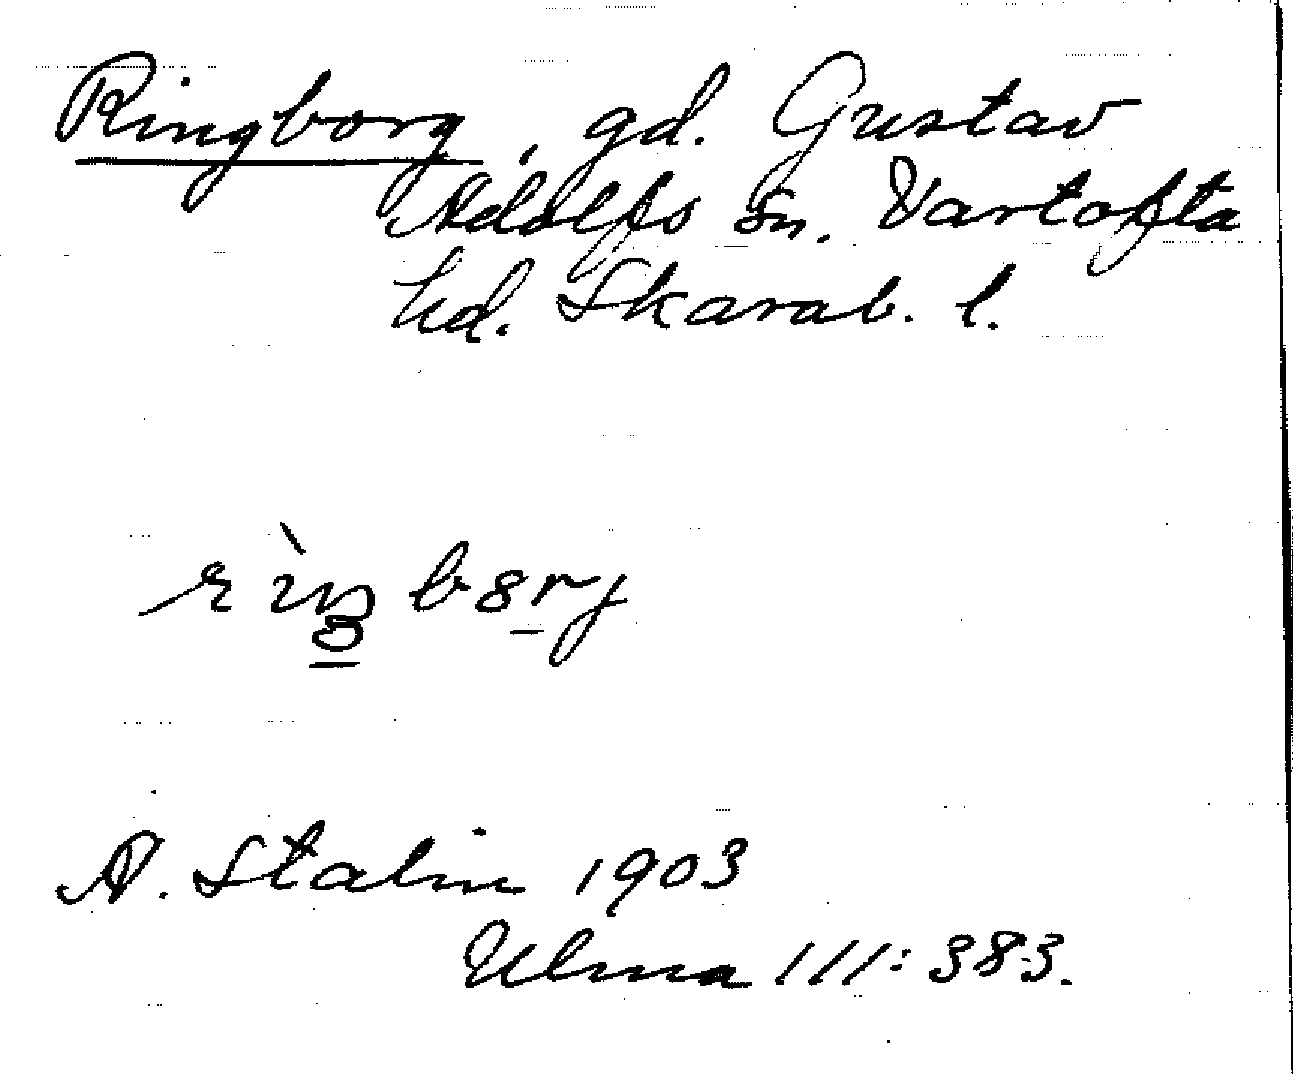 Ringborg, gd. Gustav
Adolfs sn. Vartofta
hd. Skarab. l.
A. Stalin 1903
Ulma 111:383.